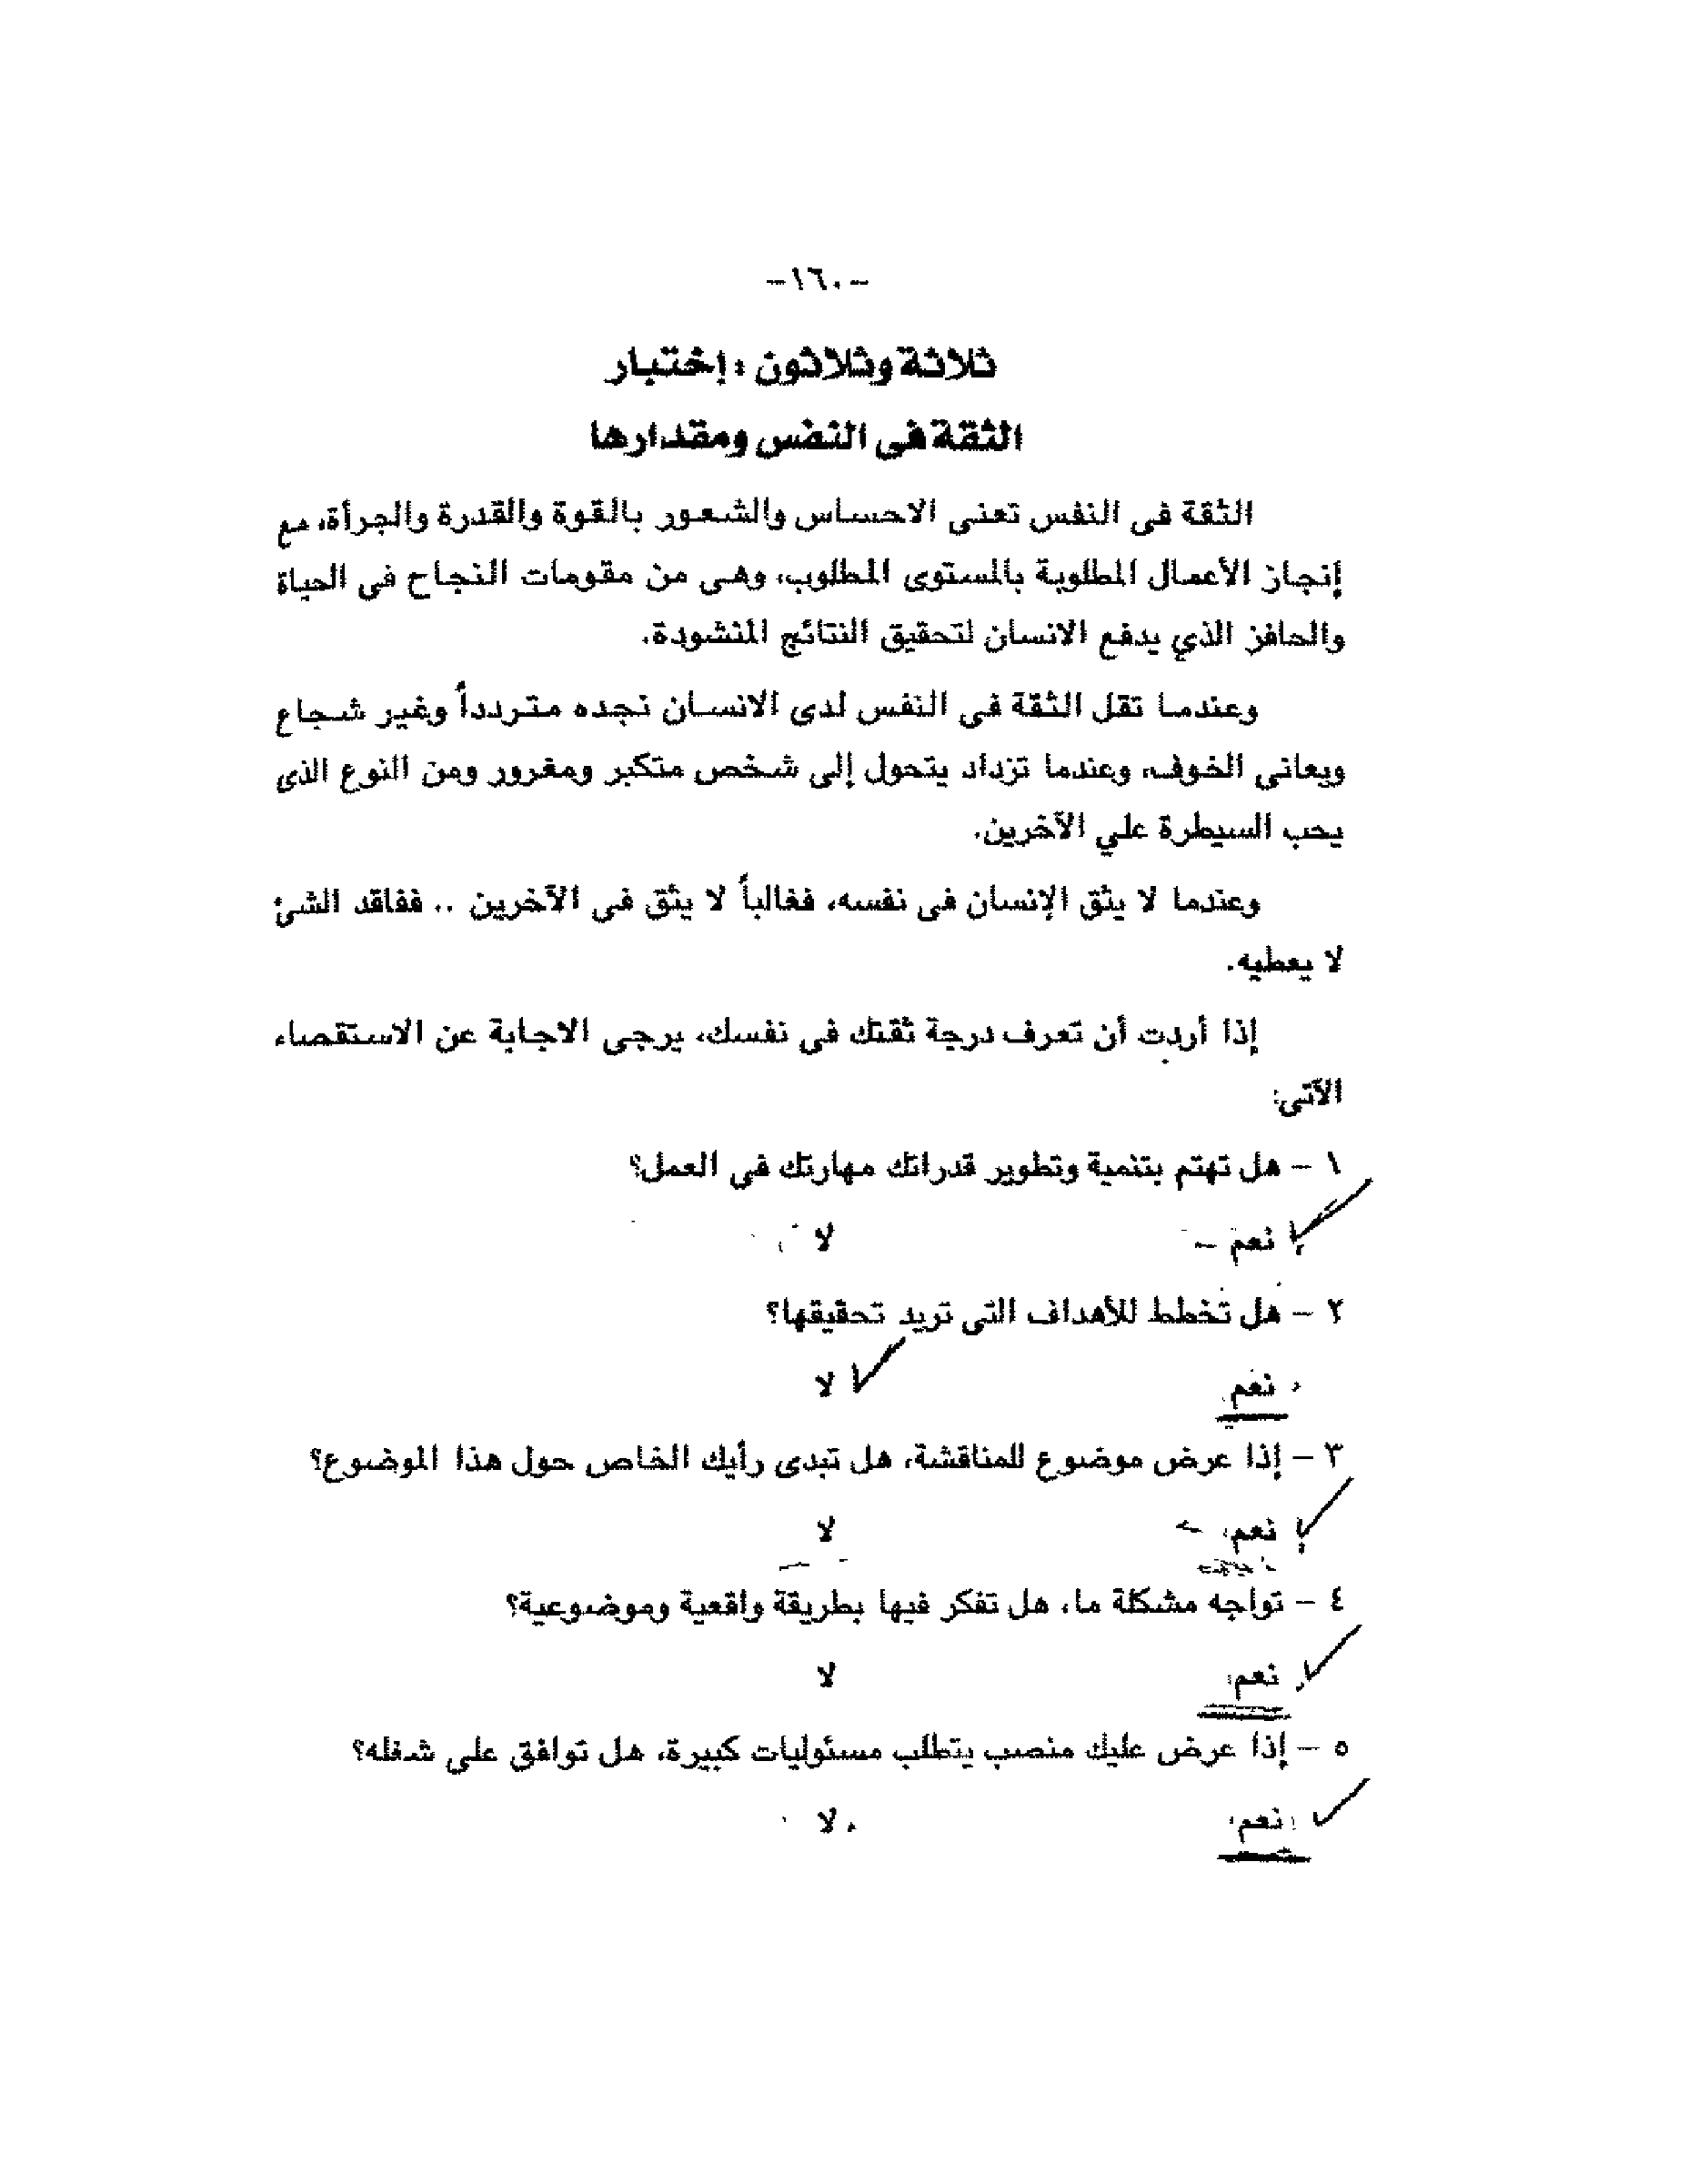 -١٦٠-
ثلاثة وثلاثون : إختبار
الثقة فى النفس ومقدارها
الثقة فى النفس تعنى الاحساس والشعور بالقوة والقدرة والجرأة، مع
إنجاز الأعمال المطلوبة بالمستوى المطلوب، وهى من مقومات النجاح فى الحياة
والحافز الذي يدفع الانسان لتحقيق النتائج المنشودة.
وعندما تقل الثقة فى النفس لدى الانسان نجده متردداً وغير شجاع
ويعانى الخوف، وعندما تزداد يتحول إلى شخص متكبر ومغرور ومن النوع الذى
يحب السيطرة علي الآخرين.
وعندما لا يثق الإنسان فى نفسه، فغالباً لا يثق فى الآخرين .. ففاقد الشئ
لا يعطيه.
إذا أردت أن تعرف درجة ثقتك فى نفسك، يرجى الاجابة عن الاستقصاء
الآتى:
١ - هل تهتم بتنمية وتطوير قدراتك مهارتك فى العمل؟
✓ نعم لا
٢ - هل تخطط للأهداف التى تريد تحقيقها؟
نعم ✓ لا
٣ - إذا عرض موضوع للمناقشة، هل تبدى رأيك الخاص حول هذا الموضوع؟
✓ نعم لا
٤ - تواجه مشكلة ما، هل تفكر فيها بطريقة واقعية وموضوعية؟
✓ نعم لا
٥ - إذا عرض عليك منصب يتطلب مسئوليات كبيرة، هل توافق على شغله؟
✓ نعم لا